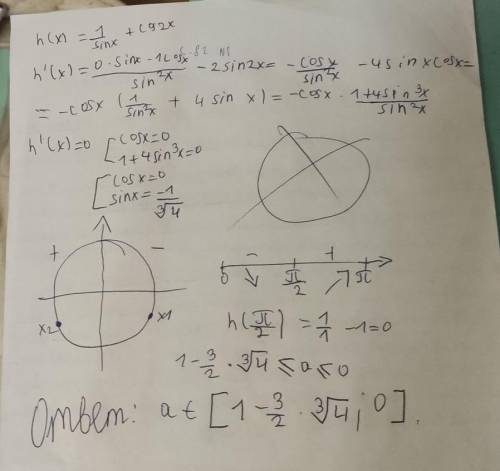 h(x) = 1/sinx + cos2x
h'(x) = (0·sinx - 1cosx)/sin²x - 2sin2x = -cosx/sin²x - 4sinxcosx =
= -cosx (1/sin²x + 4 sin x) = -cosx · (1+4sin³x)/sin²x
h'(x)=0 [cosx=0
1+4sin³x=0
[cosx=0
sinx = -1/∛4
+ -
x2 x1
- +
0 π/2 π
h(π/2) = 1/1 -1=0
1-3/2 · ∛4 ≤ a ≤ 0
Ответ: a ∈ [1-3/2 · ∛4; 0].